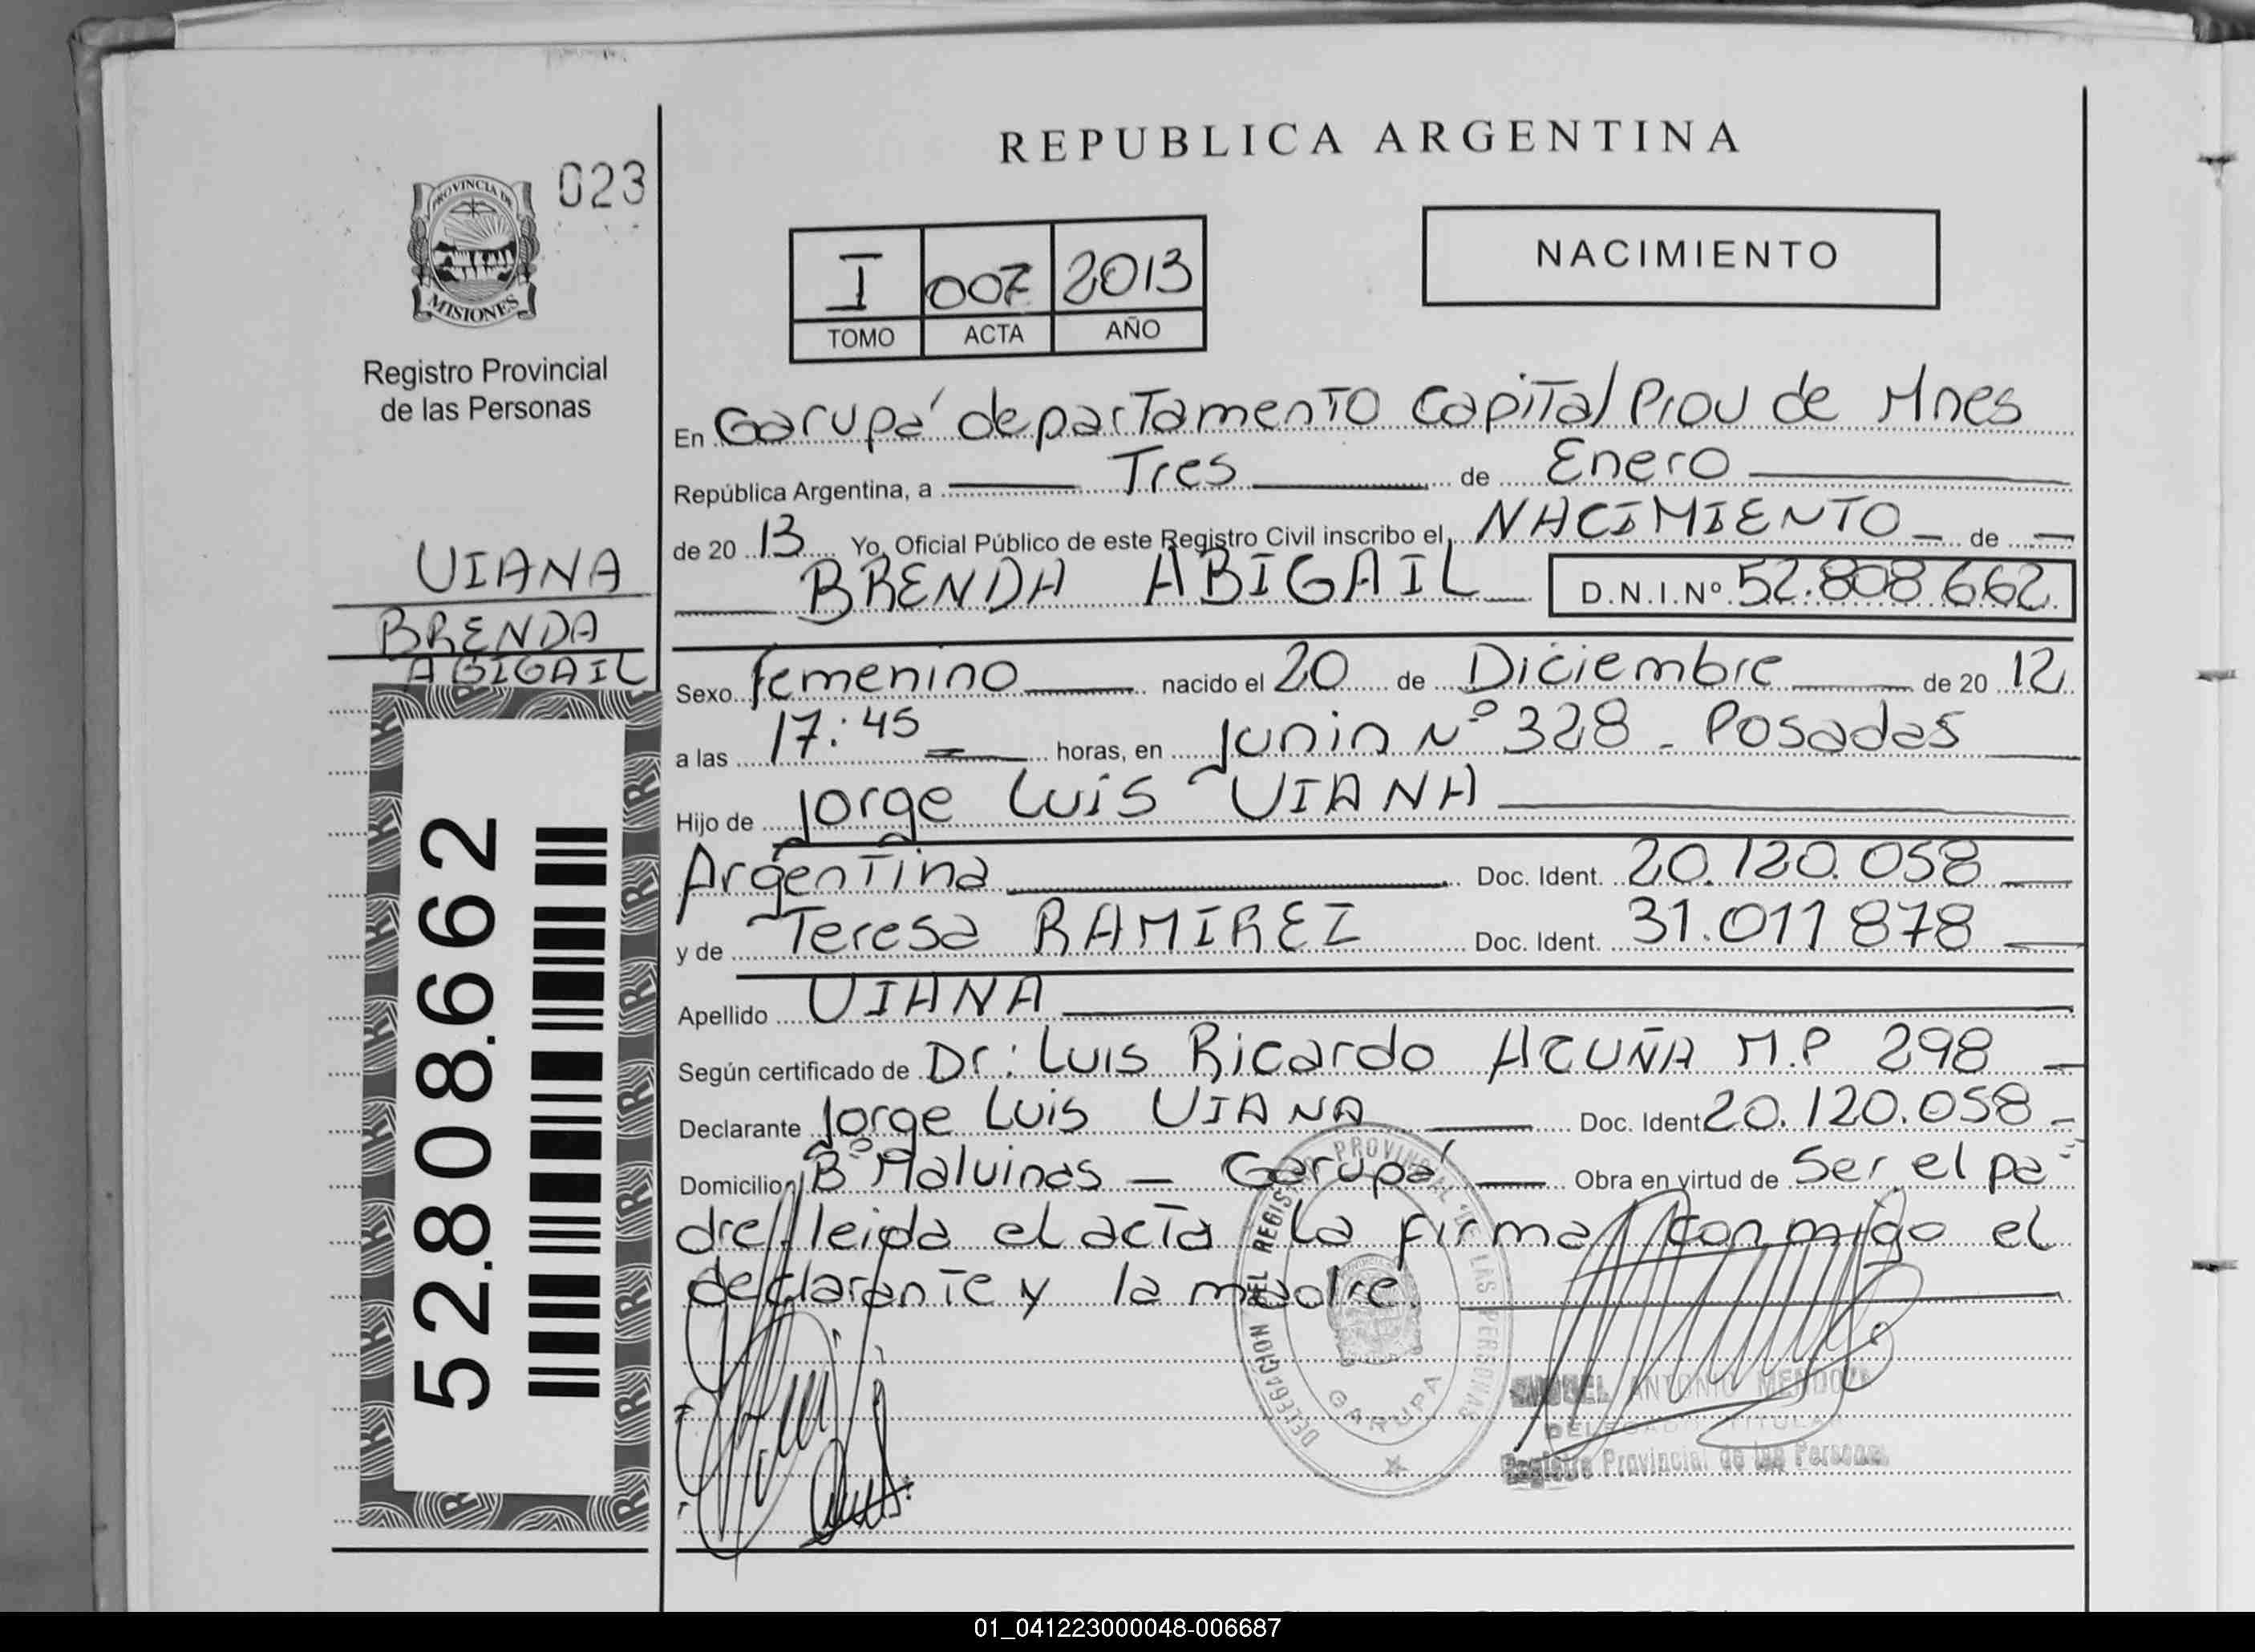 REPUBLICA ARGENTINA
023
PROVINCIA DE
MISIONES
Registro Provincial
de las Personas
NACIMIENTO
I 007 2013
TOMO ACTA AÑO
En Garupá departamento Capital Prov de Mnes
República Argentina, a Tres de Enero
de 20 13 Yo, Oficial Público de este Registro Civil inscribo el NACIMIENTO de
BRENDA ABIGAIL D.N.I.Nº 52.808.662
VIANA
BRENDA
ABIGAIL
Sexo femenino nacido el 20 de Diciembre de 20 12
a las 17:45 horas, en Junin Nº 328 - Posadas
Hijo de Jorge Luis VIANA
Argentina Doc. Ident. 20.120.058
y de Teresa RAMIREZ Doc. Ident. 31.011878
Apellido VIANA
Según certificado de Dr: Luis Ricardo ACUÑA M.P 298
Declarante Jorge Luis VIANA Doc. Ident 20.120.058
Domicilio Bº Malvinas - Garupá Obra en virtud de Ser el pa
dre leida el acta la firma conmigo el
declarante y la madre.
52.808.662
DELEGACION DEL REGISTRO PROVINCIAL DE LAS PERSONAS
GARUPA
ANTONIO MENDOZA
DELEGADO TITULAR
Registro Provincial de las Personas
01_041223000048-006687